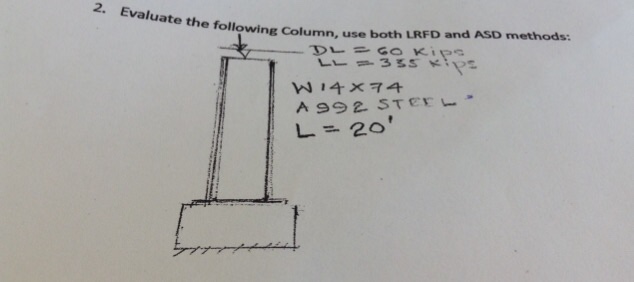 2. Evaluate the following Column, use both LRFD and ASD methods:
DL = 60 Kips
LL = 335 Kips
W14X74
A992 STEEL
L = 20'